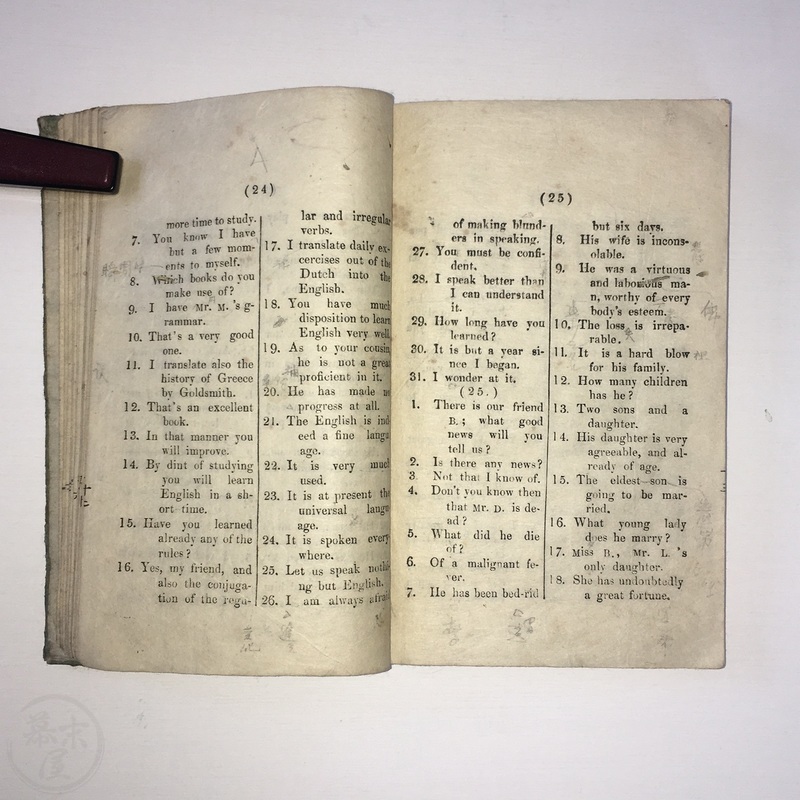 (24)
more time to study.
7. You know I have
but a few mom-
ents to myself.
8. Which books do you
make use of?
9. I have Mr. M.'s g-
rammar.
10. That's a very good
one.
11. I translate also the
history of Greece
by Goldsmith.
12. That's an excellent
book.
13. In that manner you
will improve.
14. By dint of studying
you will learn
English in a sh-
ort time.
15. Have you learned
already any of the
rules?
16. Yes, my friend, and
also the conjuga-
tion of the regu-
lar and irregular
verbs.
17. I translate daily ex-
cercises out of the
Dutch into the
English.
18. You have much
disposition to learn
English very well.
19. As to your cousin,
he is not a great
proficient in it.
20. He has made no
progress at all.
21. The English is ind
eed a fine langu
age.
22. It is very much
used.
23. It is at present the
universal langu
age.
24. It is spoken every
where.
25. Let us speak nothi
ng but English.
26. I am always afraid
(25)
of making blund-
ers in speaking.
27. You must be confi-
dent.
28. I speak better than
I can understand
it.
29. How long have you
learned?
30. It is but a year si-
nce I began.
31. I wonder at it.
(25.)
1. There is our friend
B.; what good
news will you
tell us?
2. Is there any news?
3 Not that I know of.
4. Don't you know then
that Mr. D. is de-
ad?
5. What did he die
of?
6. Of a malignant fe-
ver.
7. He has been bed-rid
but six days.
8. His wife is incons-
olable.
9. He was a virtuous
and laborious ma-
n, worthy of every
body's esteem.
10. The loss is irrepa-
rable.
11. It is a hard blow
for his family.
12. How many children
has he?
13. Two sons and a
daughter.
14. His daughter is very
agreeable, and al-
ready of age.
15. The eldest son is
going to be mar-
ried.
16. What young lady
does he marry?
17. Miss B., Mr. L.'s
only daughter.
18. She has undoubtedly
a great fortune.
幕末屋